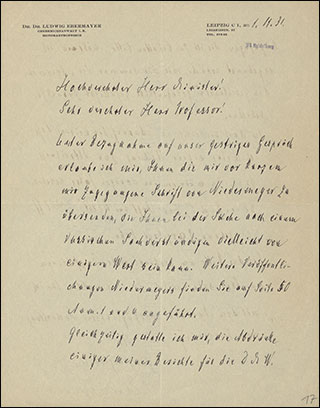 DR. DR. LUDWIG EBERMAYER
OBERREICHSANWALT I.R.
HONORARPROFESSOR
LEIPZIG C 1, DEN 1. 11. 31.
TEL.
Hochverehrter Herr Minister!
Sehr verehrter Herr Professor!
Unter Bezugnahme auf unser gestriges Gespräch
erlaube ich mir, Ihnen die mir vor Kurzem
mir zugegangene Schrift von Niedermeyer zu
übersenden, die Ihnen bei der Suche nach einem
Sachverständigen vielleicht von
einigem Wert sein kann. Weitere Veröffentli-
chungen Niedermeyers finden Sie auf Seite 50
Anm. 1 und 4 angeführt.
Gleichzeitig gestatte ich mir, die Abdrücke
einiger meiner Berichte für die D. M. W.
17